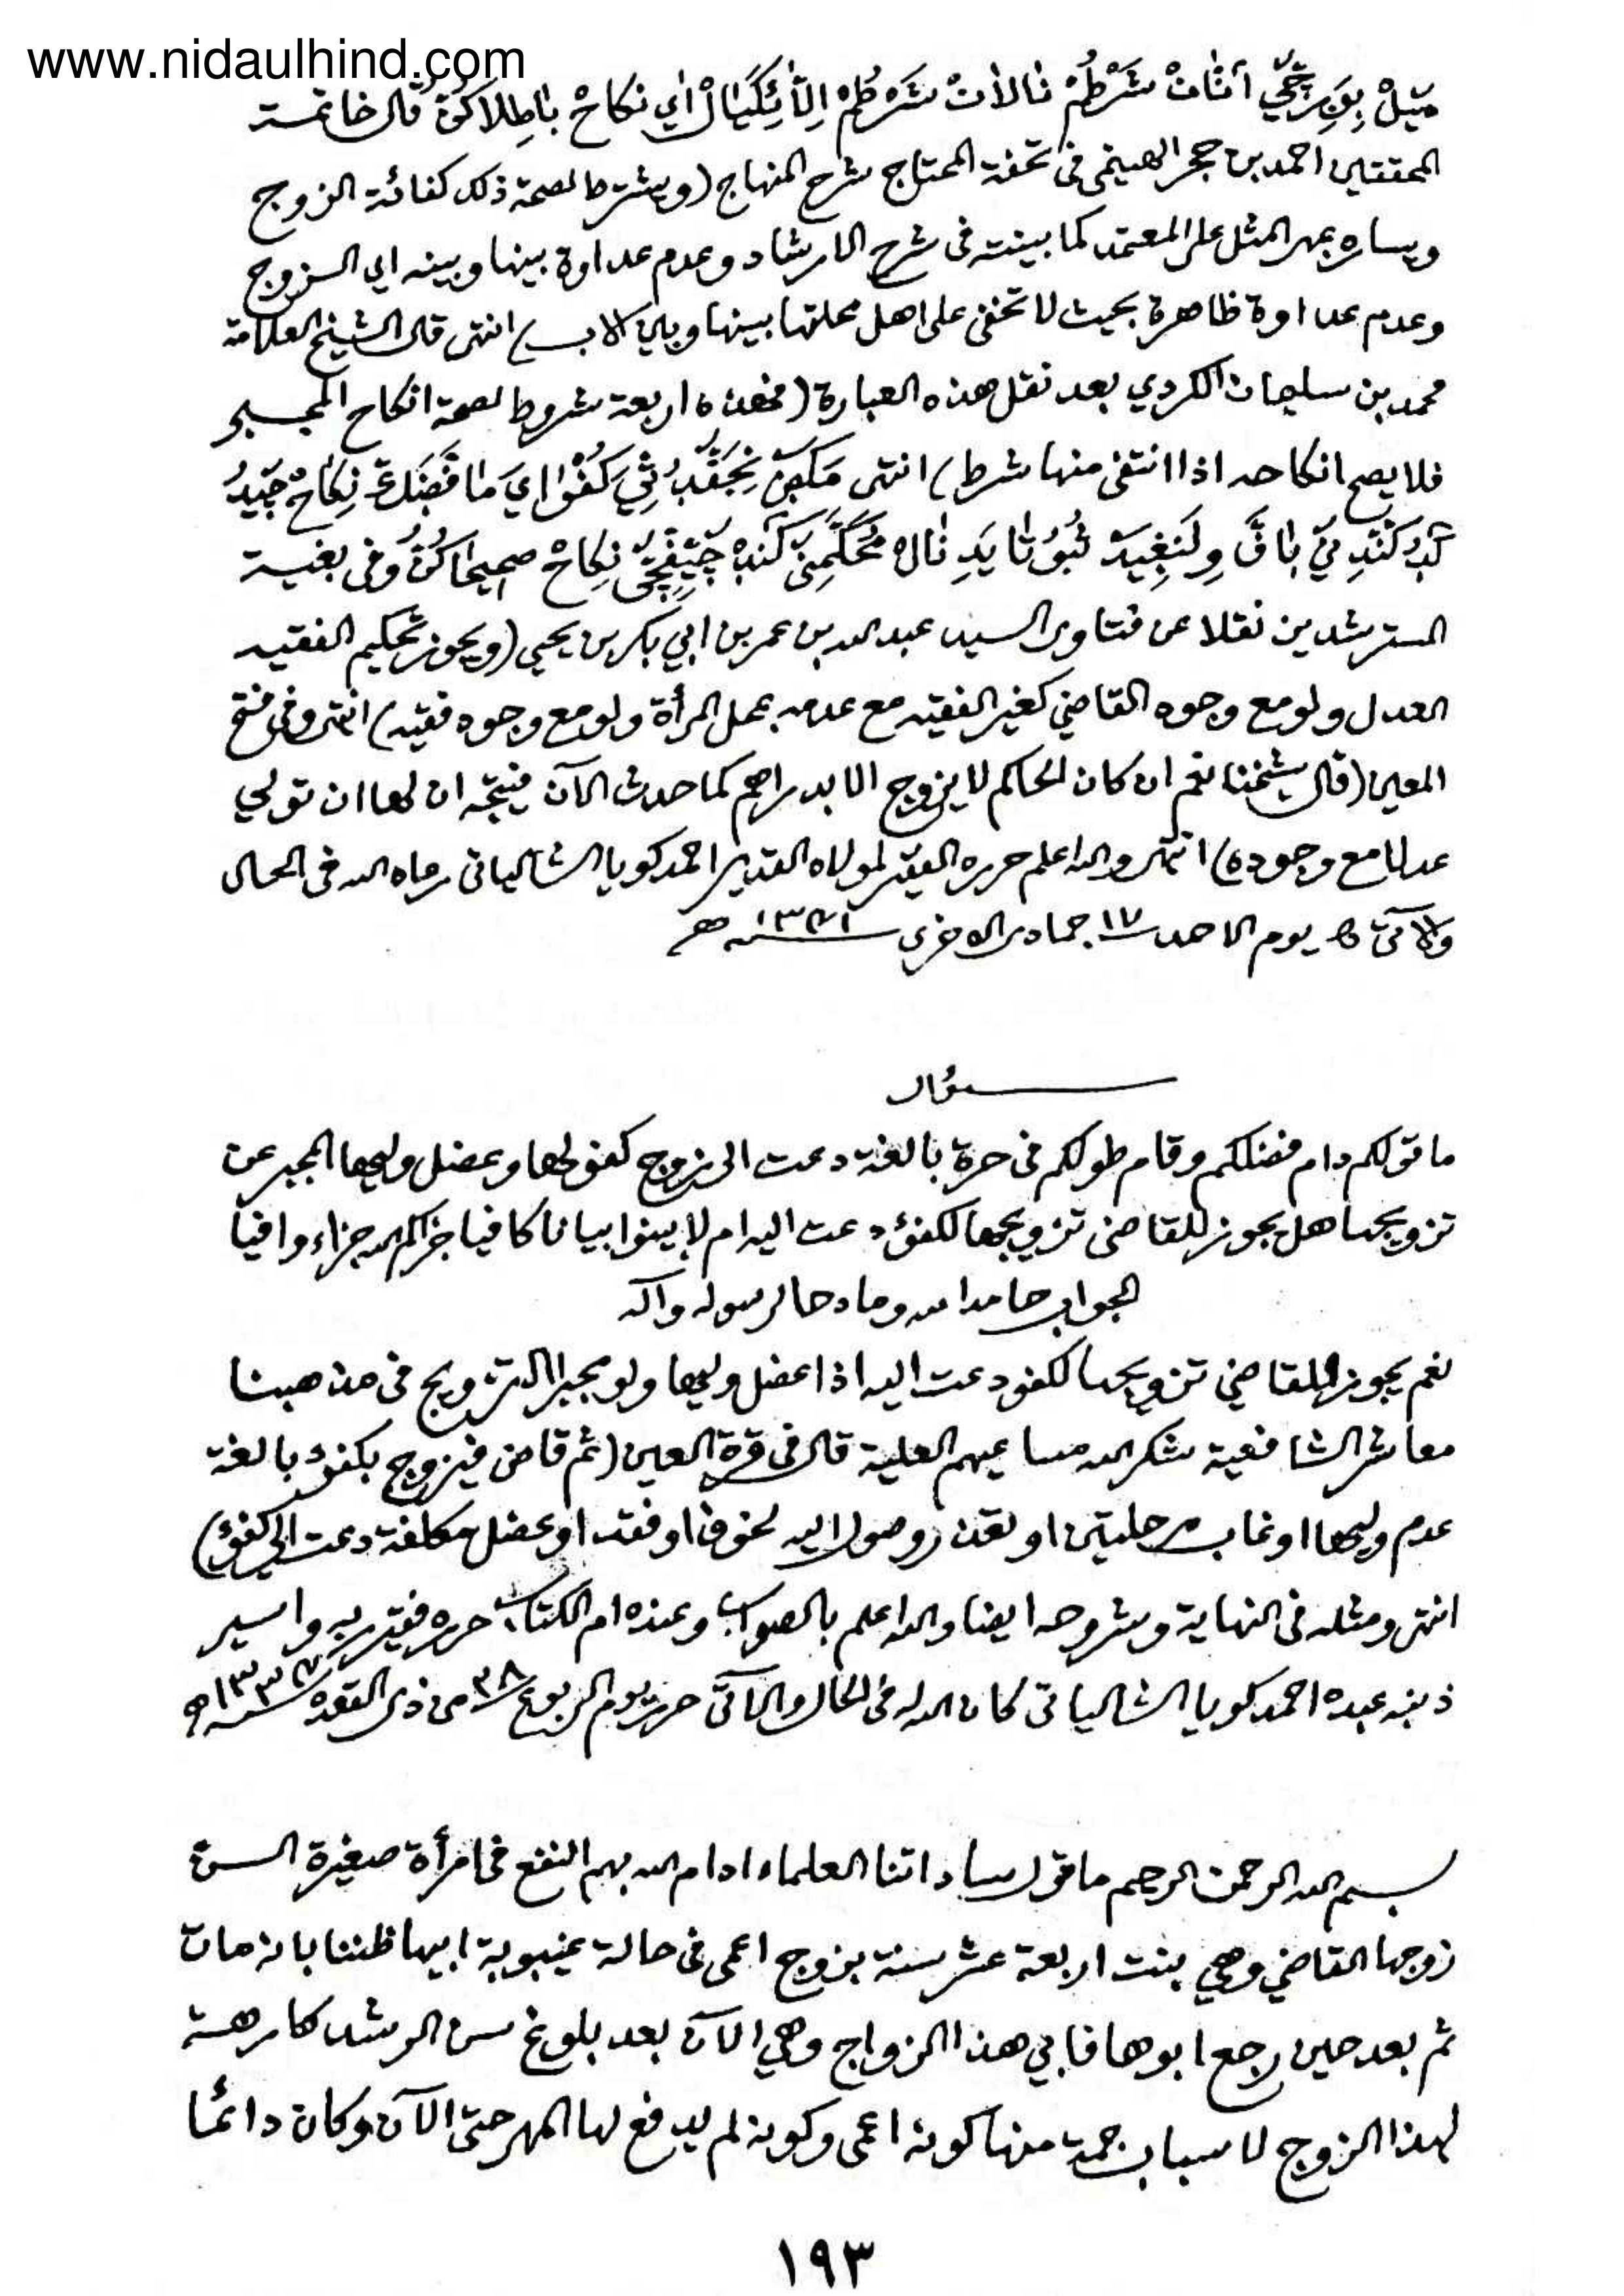 www.nidaulhind.com
شَرْطُمْ نَالَانْ شَرْطُمْ اِي نكاحْ بَاطِلاكُنُ قال خاتمة
المحققين احمد بن حجر الهيتمي فى تحفة المحتاج شرح المنهاج (ويشترط لصحة ذلك كفائة الزوج
ويساره بمهر المثل على المعتمد كما بينته فى شرح الارشاد وعدم عداوة بينها وبينه اي الزوج
وعدم عداوة ظاهرة بحيث لا تخفى على اهل محلتها بينها وبين الاب) انتهى قال الشيخ العلامة
محمد بن سليمان الكردي بعد نقل هذه العبارة (فهذه اربعة شروط لصحة انكاح المجبر
فلا يصح انكاحه اذا انتفى منها شرط) انتهى نِكَاحْ
نِكَاحْ صحيحاكُنُ وفى بغية
المسترشدين نقلا عن فتاوى السيد عبد الله بن عمر بن ابي بكر بن يحيى (ويجوز تحكيم الفقيه
العدل ولو مع وجود القاضي كغير الفقيه مع عدمه بمحل المرأة ولو مع وجود فقيه) انتهى وفى فتح
المعين (قال شيخنا نعم ان كان الحاكم لا يزوج الا بدراهم كما حدث الآن فيتجه ان لها ان تولي
عدلا مع وجوده) انتهى والله اعلم حرره الفقير لمولاه القدير احمد كويا الشالياتى رعاه الله فى الحال
والآتى يوم الاحد ١٧ جمادى الاخرى سنة ه
سؤال
ما قولكم دام فضلكم وقام طولكم فى حرة بالغة دعت الى زوج كفو لها وعضل وليها المجبر عن
تزويجها هل يجوز للقاضى تزويجها لكفؤ دعت اليه ام لا بينوا بيانا كافيا جزاكم الله جزاء وافيا
الجواب حامدا لله ومادحا لرسوله وآله
نعم يجوز للقاضي تزويجها لكفو دعت اليه اذا عضل وليها ولو مجبرا التزويج فى مذهبنا
معاشر الشافعية شكر الله مساعيهم العلية قال فى قرة العين (ثم قاض فيزوج بكفؤ بالغة
عدم وليها او غاب مرحلتين او تعذر وصول اليه لخوف او فقد او عضل مكلفة دعت الى كفؤ)
انتهى ومثله فى النهاية وشروحه ايضا والله اعلم بالصواب وعنده ام الكتاب حرره فقير ربه واسير
ذنبه عبده احمد كويا الشالياتى كان الله له فى الحال والآتى حرر يوم الربوع من ذى القعدة سنة ه
بسم الله الرحمن الرحيم ما قول ساداتنا العلماء ادام الله بهم النفع فى امرأة صغيرة السن
زوجها القاضي وهي بنت اربعة عشر سنة بزوج اعمى فى حالة غيبوبة ابيها ظننا بانه مات
ثم بعد حين رجع ابوها فابى هذا الزواج وهي الآن بعد بلوغ سن الرشد كارهة
لهذا الزوج لاسباب جمة منها كونه اعمى وكونه لم يدفع لها المهر حتى الآن وكان دائما
١٩٣